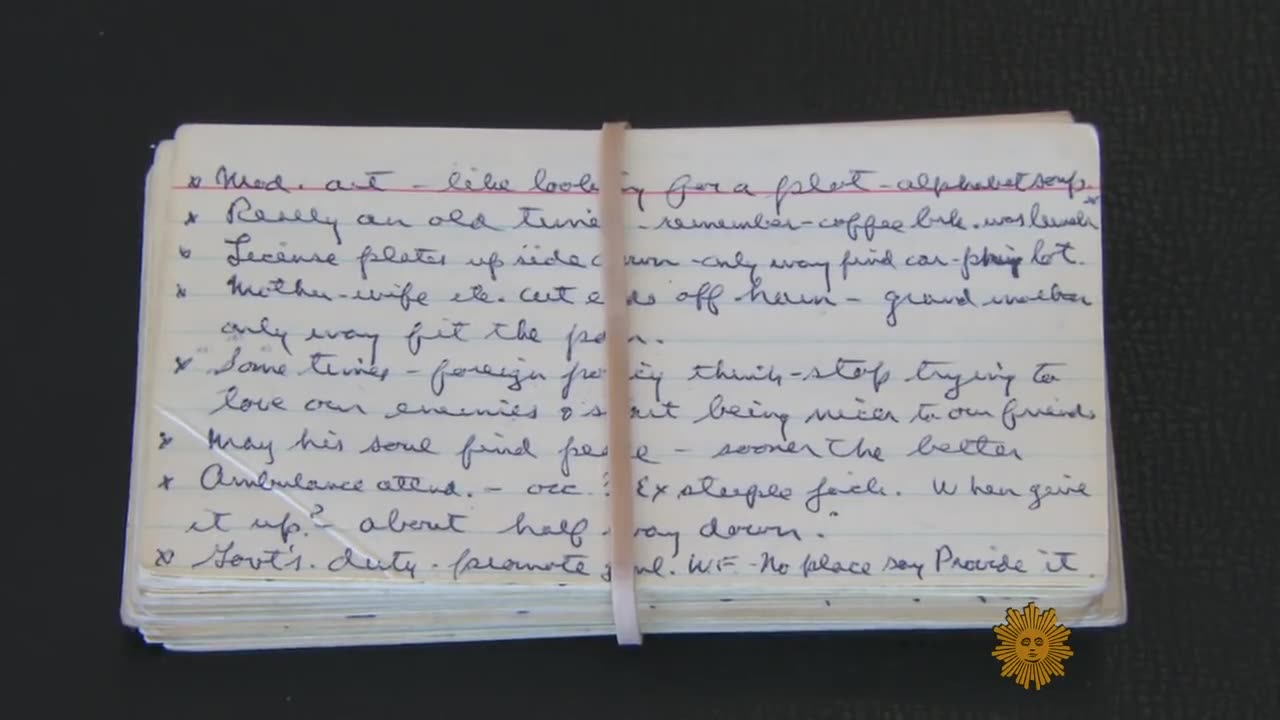 x Mod. art - like looking for a plot - alphabet soup.
x Really an old timer - remember - coffee brk. was lunch
x License plates up side down - only way find car - pking lot.
x Mother - wife etc. cut ends off ham - grand mother
only way fit the pan.
x Some times - foreign policy think - stop trying to
love our enemies & start being nicer to our friends
x May his soul find peace - sooner the better
x Ambulance attend. - occ.? Ex steeple jack. When give
it up? - about half way down."
x Govt's. duty - promote genl. WF - No place say Provide it